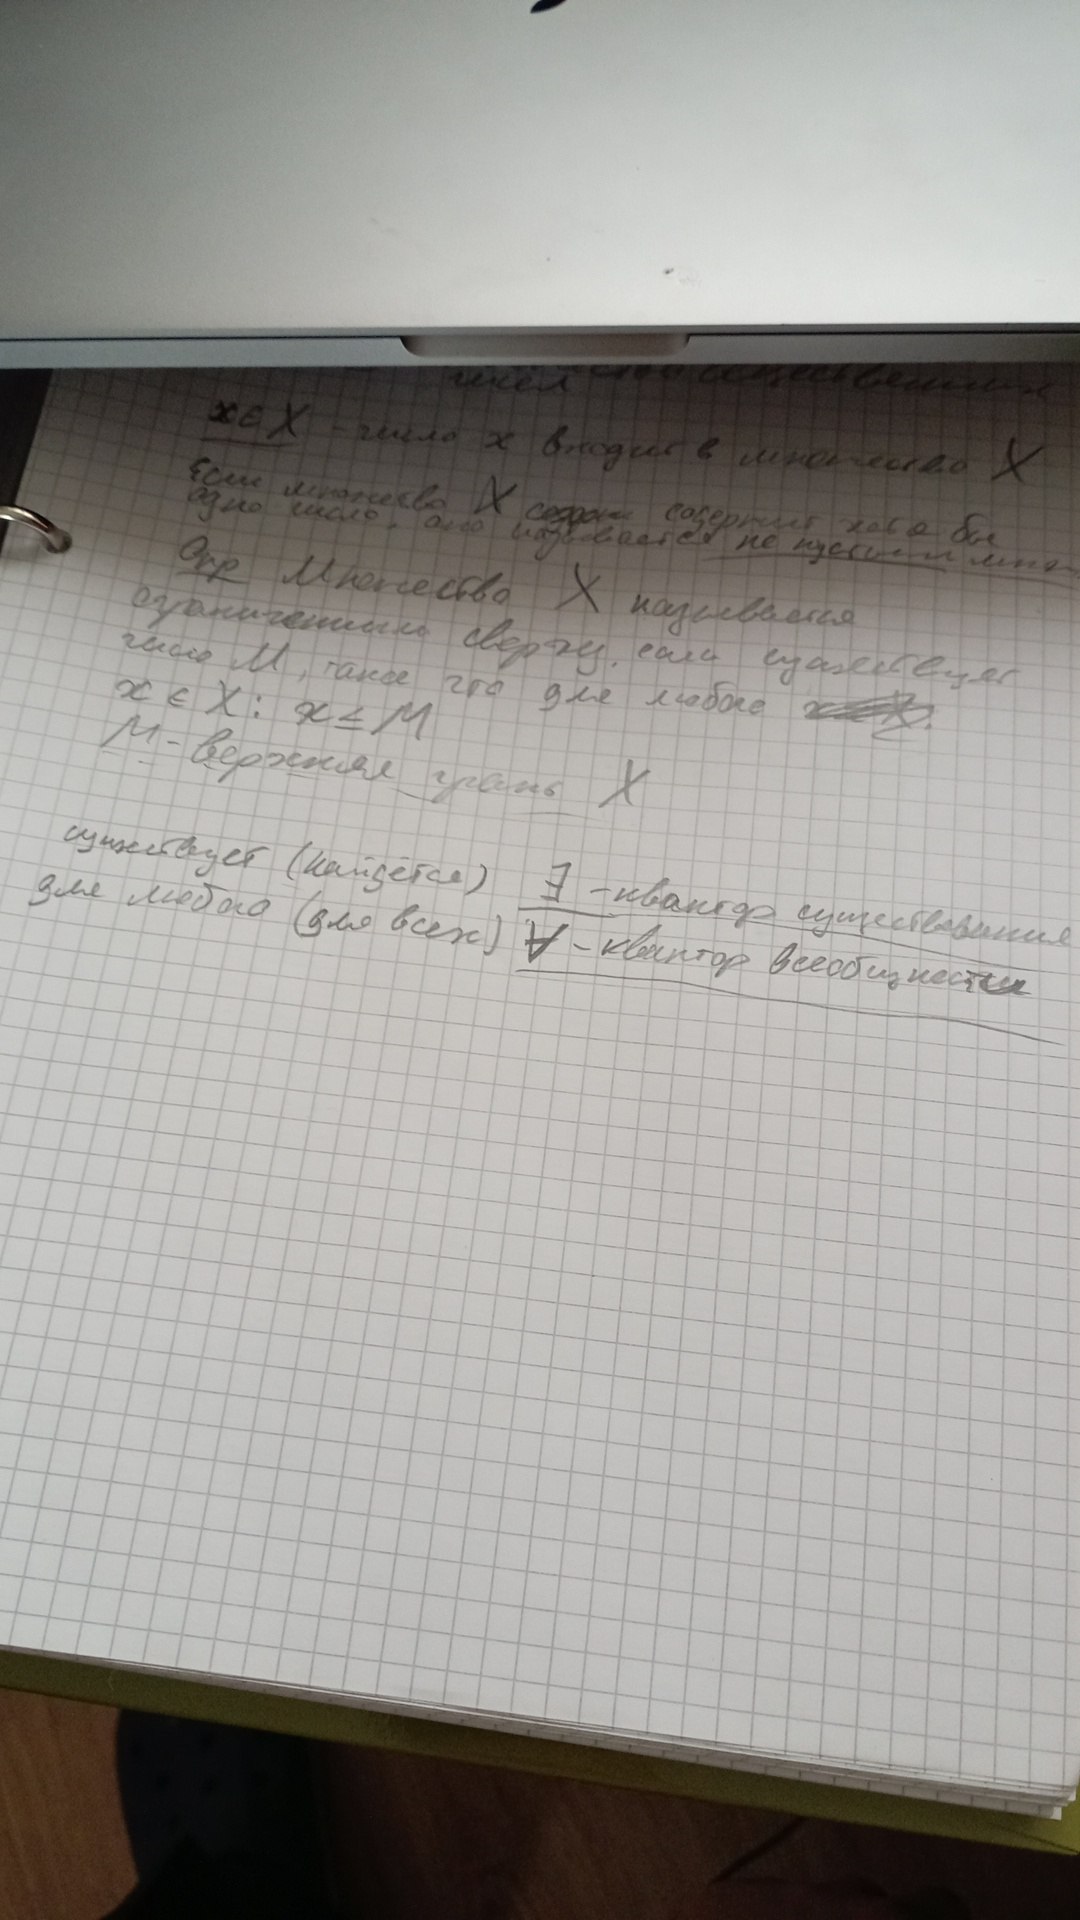 чисел вещественных
x ∈ X - число x входит в множество X
Если множество X содержит хотя бы
одно число, оно называется не пустым мн
Опр Множество X называется
ограниченным сверху, если существует
число M, такое что для любого
x ∈ X: x ≤ M
M - верхняя грань X
существует (найдётся) ∃ - квантор существования
для любого (для всех) ∀ - квантор всеобщности